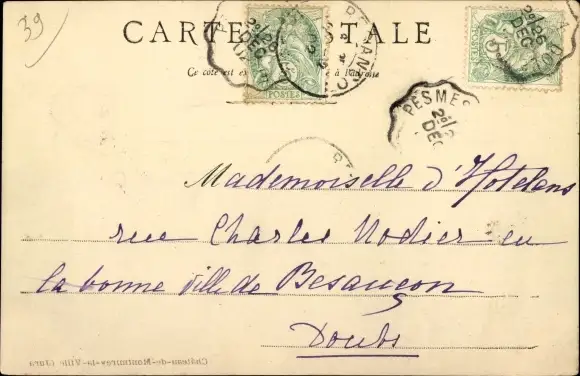 39
CARTE POSTALE
Ce côté est exclusivement réservé à l'adresse
POSTES
PESMES
DEC
Mademoiselle d'Hotelans
rue Charles Nodier en
la bonne ville de Besançon
Doubs
Château-de-Montmirey-la-Ville (Jura